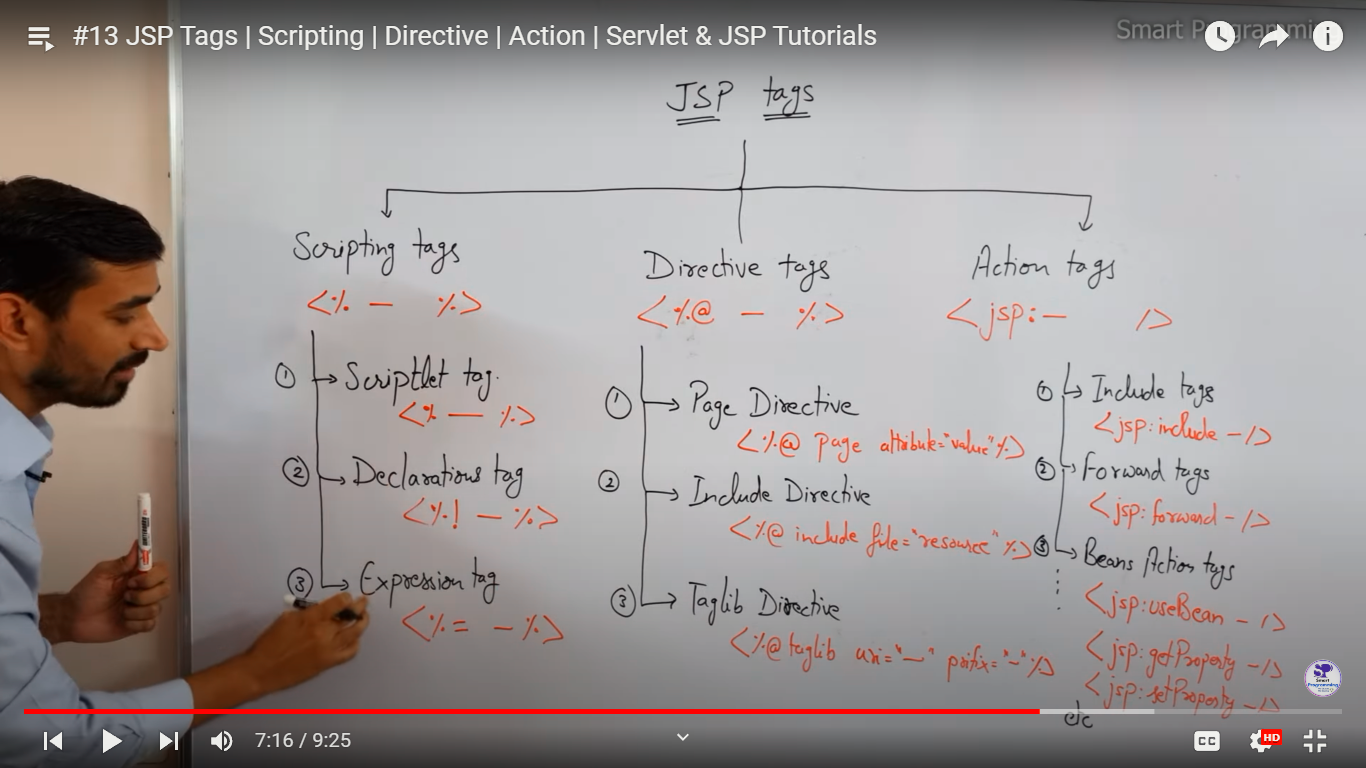 #13 JSP Tags | Scripting | Directive | Action | Servlet & JSP Tutorials
Smart Programming
JSP tags
Scripting tags
<% — %>
① Scriptlet tag
<% — %>
② Declarations tag
<%! — %>
③ Expression tag
<%= — %>
Directive tags
<%@ — %>
① Page Directive
<%@ page attribute="value" %>
② Include Directive
<%@ include file="resource" %>
③ Taglib Directive
<%@ taglib uri="—" prifix="—" %>
Action tags
<jsp:— />
① Include tags
<jsp:include — />
② Forward tags
<jsp:forward — />
③ Beans Action tags
<jsp:useBean — />
<jsp:getProperty — />
<jsp:setProperty — />
etc
Smart
Programming
7:16 / 9:25
CC
HD